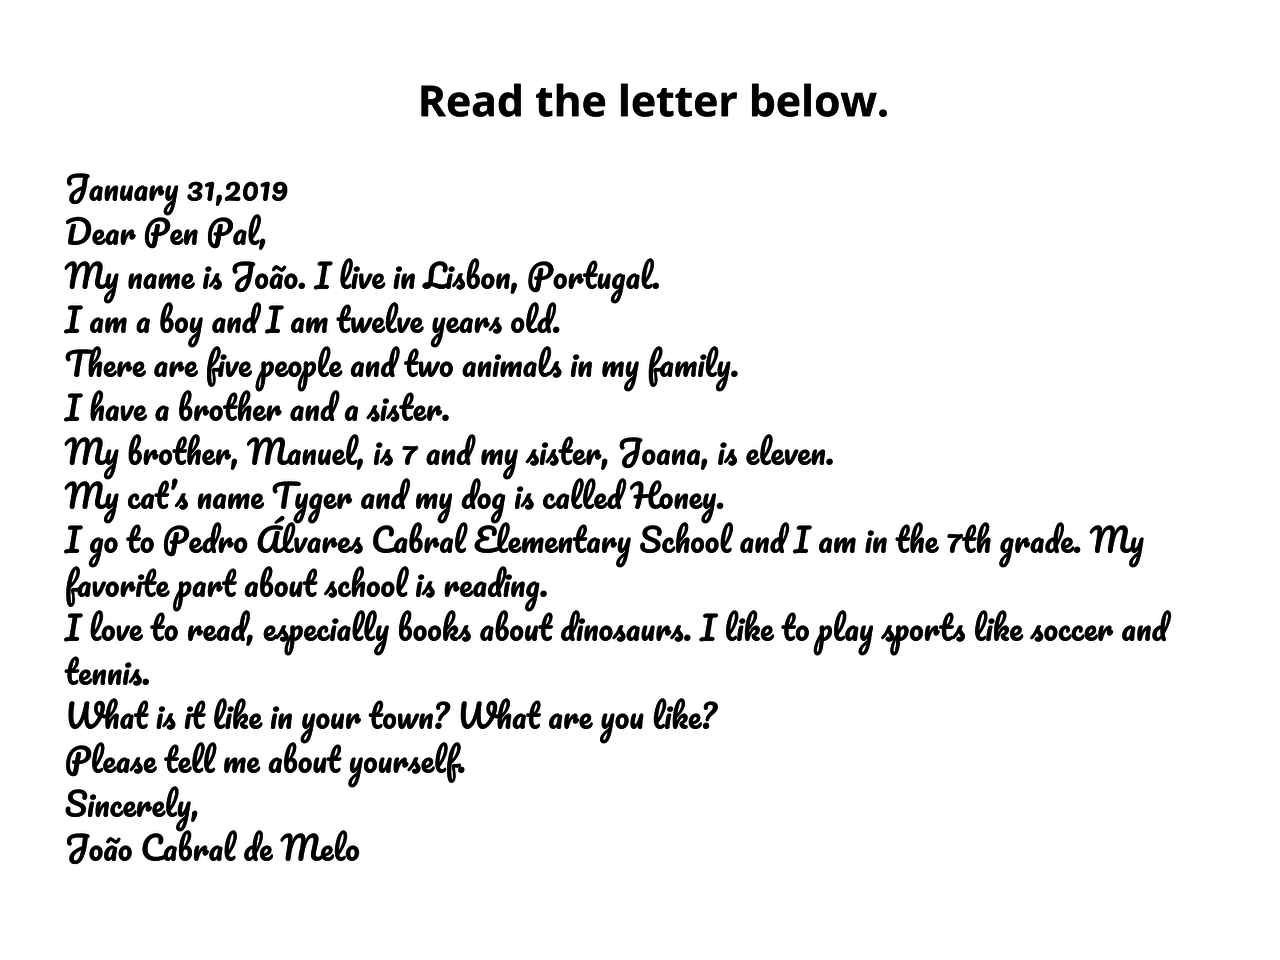 Read the letter below.
January 31,2019
Dear Pen Pal,
My name is João. I live in Lisbon, Portugal.
I am a boy and I am twelve years old.
There are five people and two animals in my family.
I have a brother and a sister.
My brother, Manuel, is 7 and my sister, Joana, is eleven.
My cat's name Tyger and my dog is called Honey.
I go to Pedro Álvares Cabral Elementary School and I am in the 7th grade. My
favorite part about school is reading.
I love to read, especially books about dinosaurs. I like to play sports like soccer and
tennis.
What is it like in your town? What are you like?
Please tell me about yourself.
Sincerely,
João Cabral de Melo